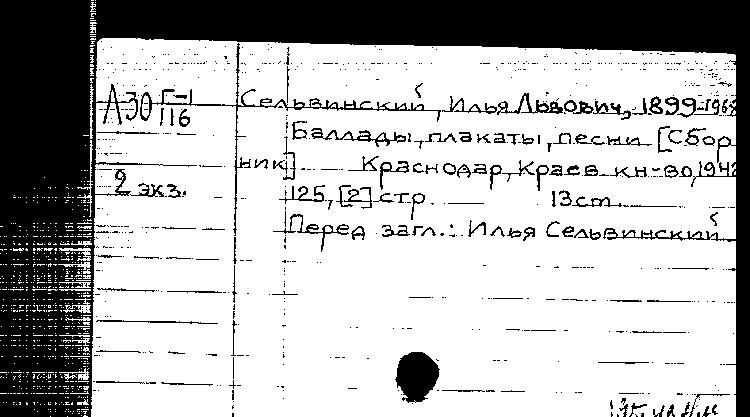 Л30 Г-1
116
Сельвинский, Илья Львович, 1899-1968
Баллады, плакаты, песни [Сбор
ник] Краснодар, Краев. кн-во, 1942
2 экз.
125, [2] стр. 13 cm.
Перед загл.: Илья Сельвинский